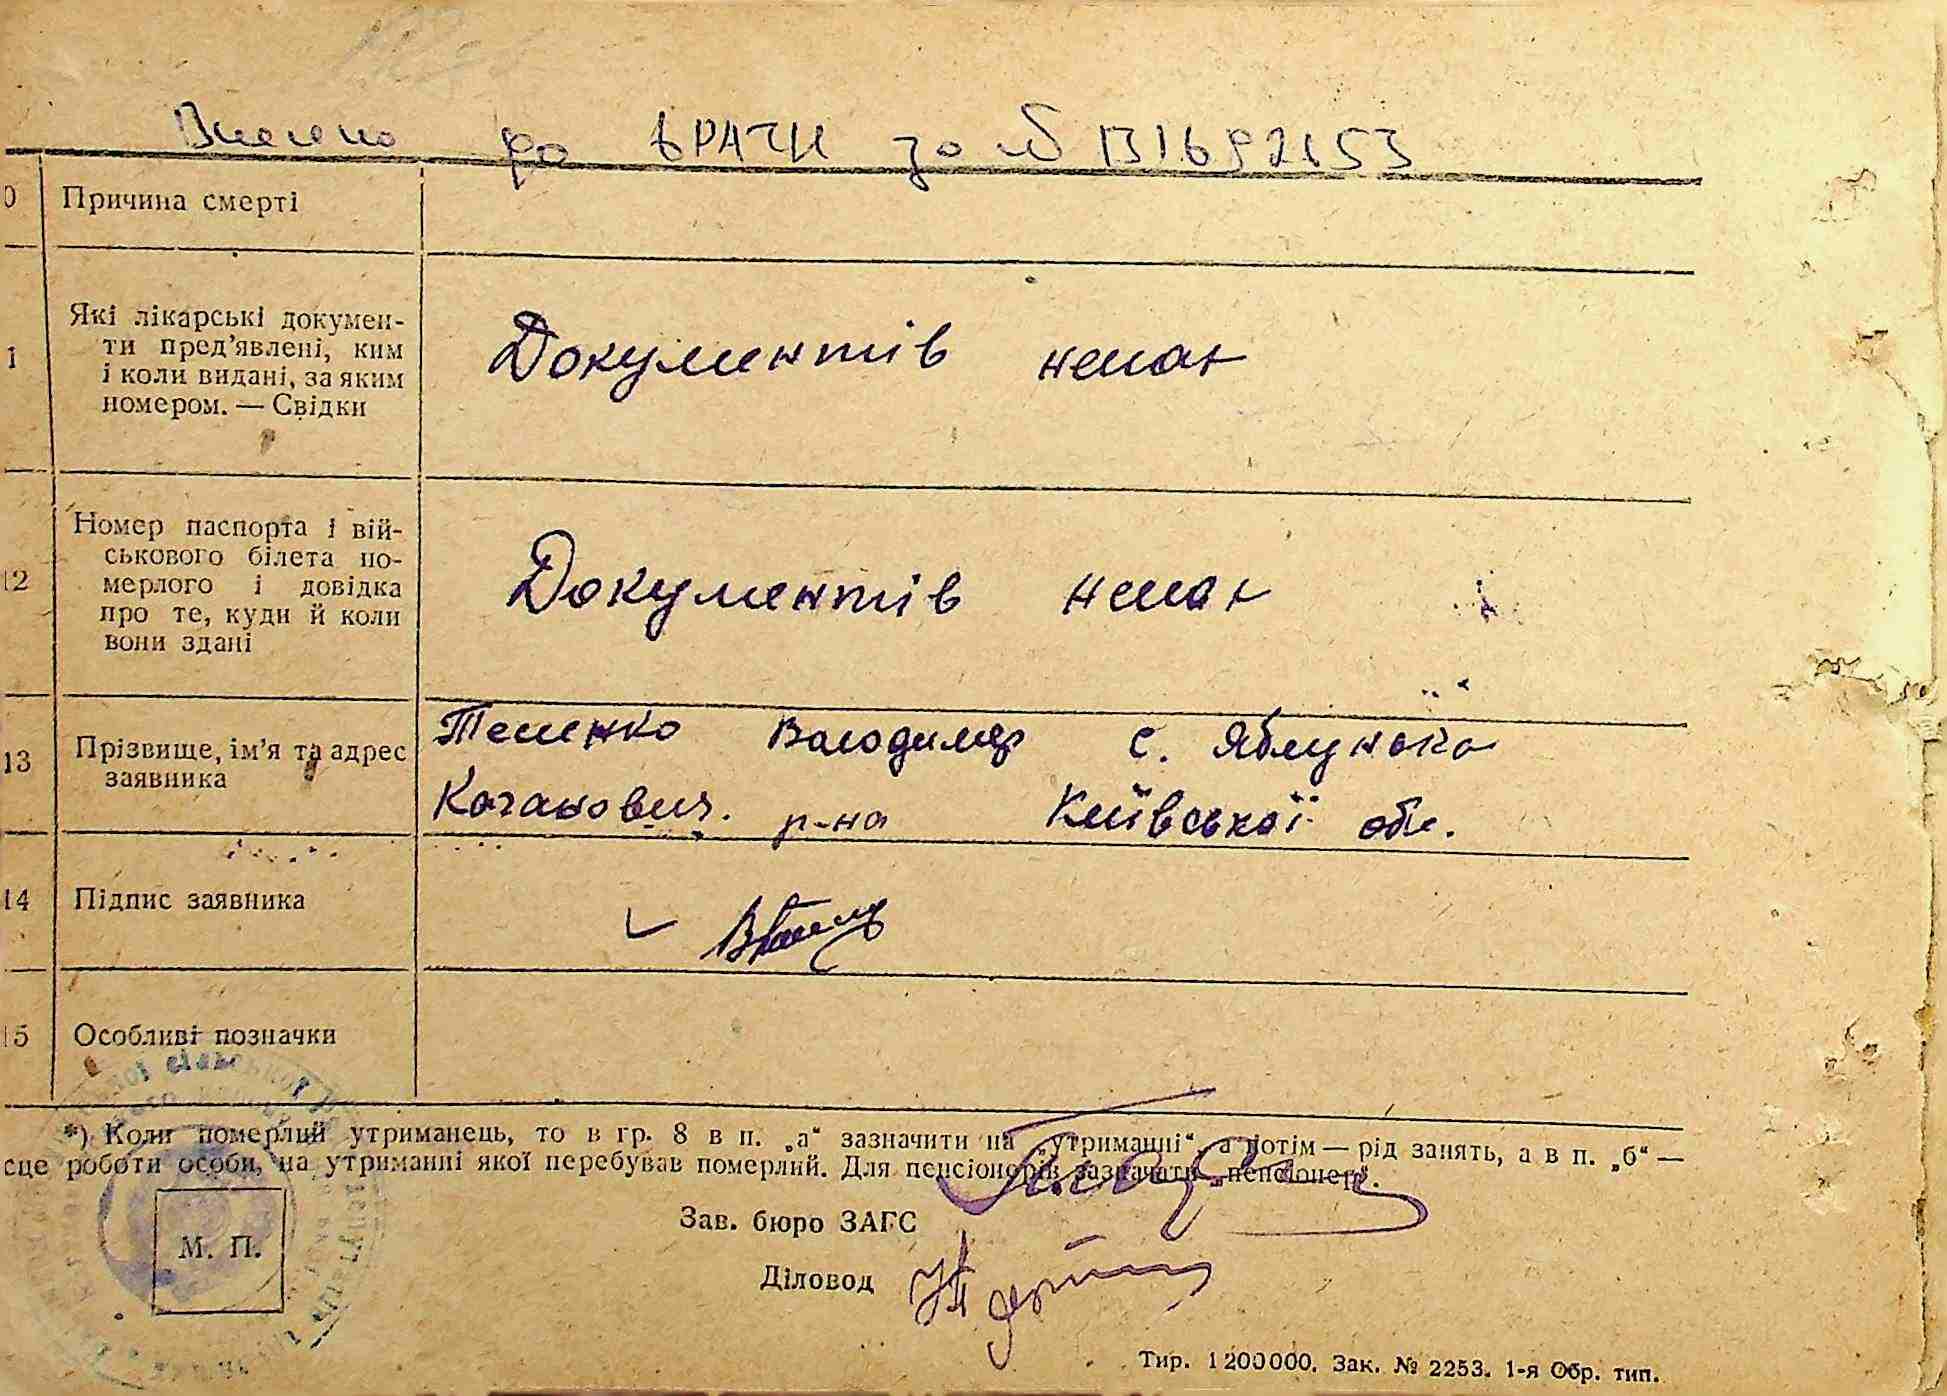 Внесено до ДРАЦГ за № 131692153
0 Причина смерті
1 Які лікарські докумен-
ти пред'явлені, ким
і коли видані, за яким
номером. — Свідки
Документів немає
12 Номер паспорта і вій-
ськового білета по-
мерлого і довідка
про те, куди й коли
вони здані
Документів немає
13 Прізвище, ім'я та адрес
заявника
Теменко Володимир с. Яблуновка
Каганович. р-на Київської обл.
14 Підпис заявника
15 Особливі позначки
*) Коли померлий утриманець, то в гр. 8 в п. „а“ зазначити „на утриманні“, а потім — рід занять, а в п. „б“ —
сце роботи особи, на утриманні якої перебував померлий. Для пенсіонерів зазначати „пенсіонер“.
Зав. бюро ЗАГС
М. П.
Діловод
Тир. 1200000. Зак. № 2253. 1-я Обр. тип.